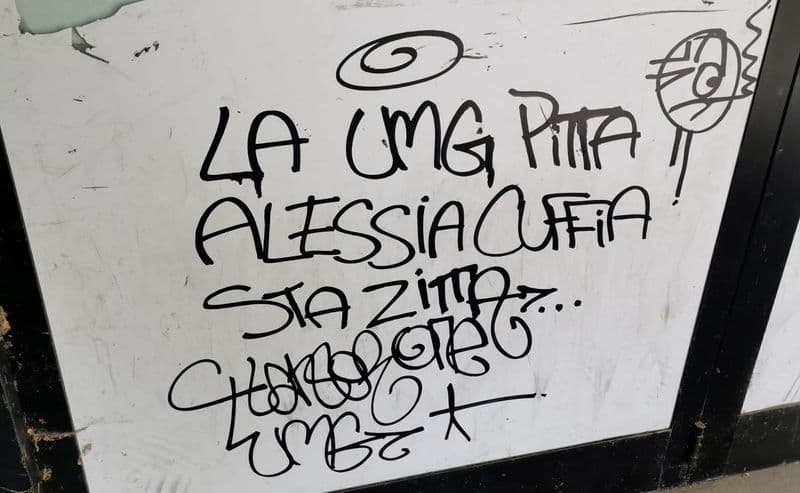 LA UMG PITTA
ALESSIA CUFFIA
STA ZITTA...
UMG